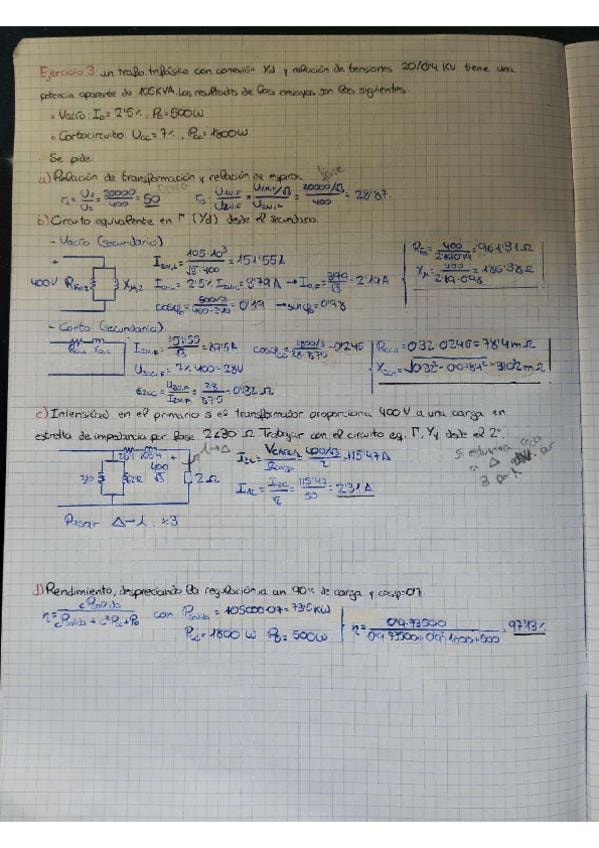 Ejercicio 3 un trafo trifásico con conexión Yd y relación de tensiones 20/0'4 KV tiene una
potencia aparente de 105KVA. Los resultados de los ensayos son los siguientes:
• Vacío: I₀ = 2'5%, P₀ = 500W
• Cortocircuito: Ucc = 7%, Pcc = 1800W.
Se pide:
a) Relación de transformación y relación de espiras
rt = U1/U2 = 20000/400 = 50
= (20000/√3)/400 = 28'87.
b) Circuito equivalente en Γ (Yd) desde el secundario
- Vacío (secundario)
I2N,L = 105·10³/(√3·400) = 151'55A
I0,L = 2'5% I2N,L = 3'79A → I0,F = 3'79/√3 = 2'19A
cosφ0 = (500/3)/(400·2'19) = 0'19 → senφ0 = 0'98
400V RFe2 Xμ,2
RFe2 = 400/(2'19·0'19) = 961'31Ω
Xμ = 400/(2'19·0'98) = 186'38Ω
- Corto (secundario)
I2N,F = 151'55/√3 = 87'5A
U2cc,F = 7%·400 = 28V
cosφcc = (1800/3)/(28·87'5) = 0'245
Rcc,2 = 0'32·0'245 = 78'4mΩ
c) Intensidad en el primario si el transformador proporciona 400V a una carga en
estrella de impedancia por fase 2∠30° Ω Trabajar con el circuito eq. Γ, Yy desde el 2º
I2C = = (400/√3)/2 = 115'47A
I1C = I2C/rt = 115'47/50 = 2'31A
2Ω
Pasar Δ→⅄ :3
d) Rendimiento, despreciando la regulación a un 90% de carga y cosφ=0'7
η = cPsalida/(cPsalida + c²Pcc + P0) con Psalida = 105000·0'7 = 73'5KW
Pcc = 1800 W P0 = 500W
η = 0'9·73500/(0'9·73500+0'9²·1800+500) = 97'13%